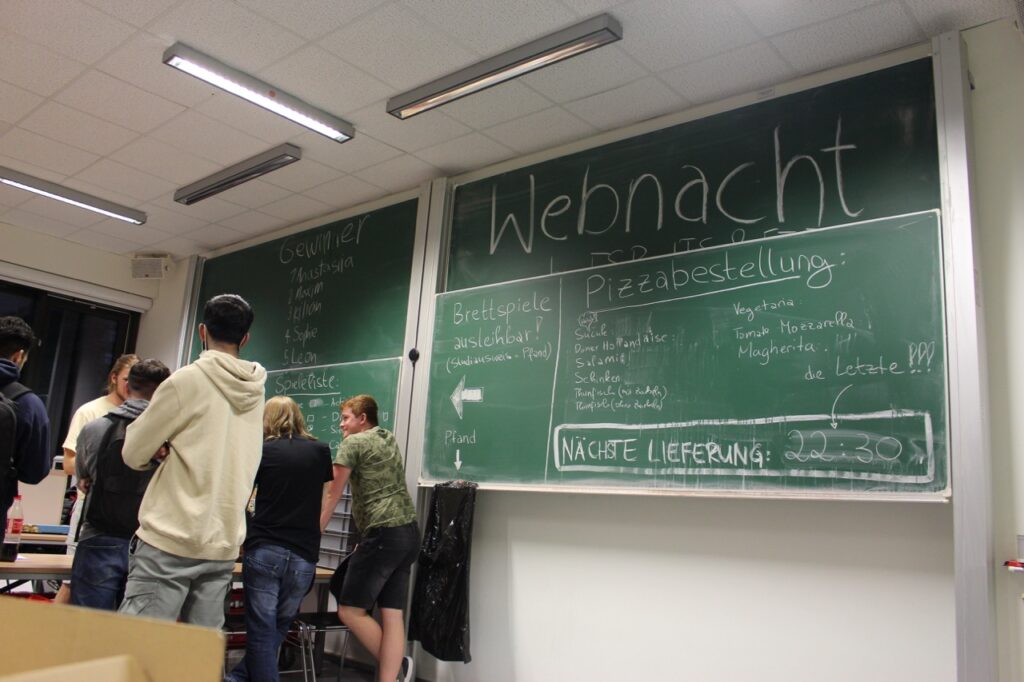 Webnacht
Gewinner
1 Anastasija
2 Maxim
3 Kilian
4. Sophie
5. Leon
Spieleliste:
Brettspiele
ausleihbar!
(Studiausweis = Pfand)
Pfand
Pizzabestellung:
Sucuk
Döner Hollandaise:
Salami
Schinken
Thunfisch (mit Zwiebeln)
Thunfisch (ohne Zwiebeln)
Vegetaria:
Tomate Mozzarella
Magherita:
die Letzte!!!
NÄCHSTE LIEFERUNG: 22:30